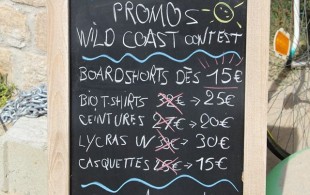 PROMOS
WILD COAST CONTEST
BOARDSHORTS DÈS 15€
BIO T-SHIRTS € → 25€
CEINTURES 27€ → 20€
LYCRAS UV € → 30€
CASQUETTES € → 15€